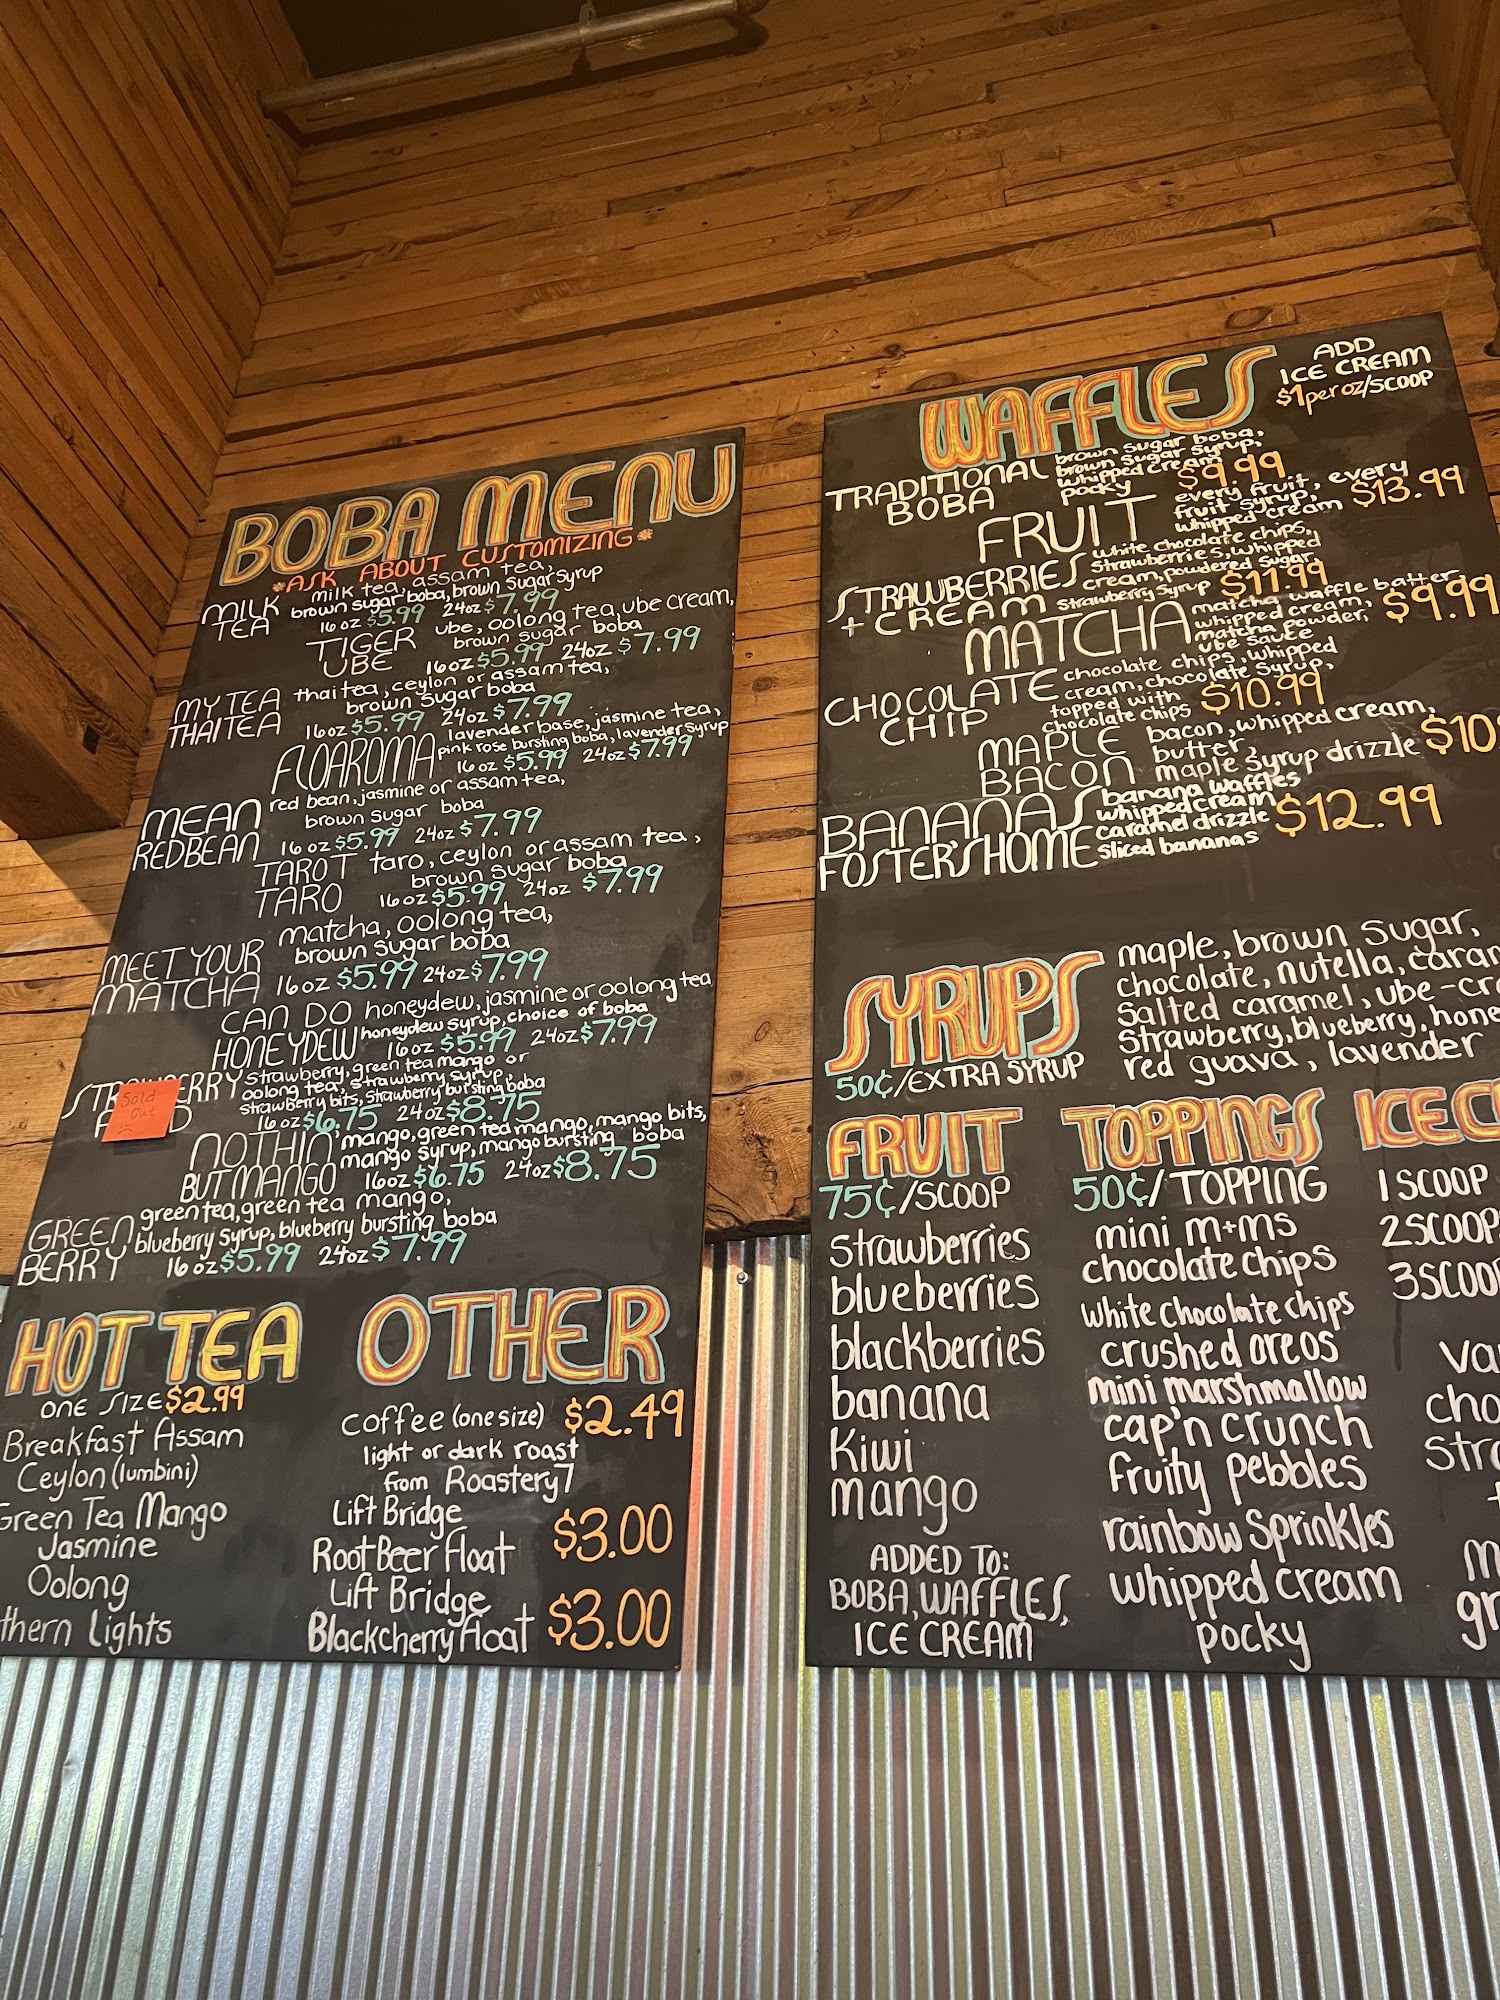 BOBA MENU
*ASK ABOUT CUSTOMIZING*
MILK TEA
milk tea, assam tea,
brown sugar boba, brown sugar syrup
16oz $5.99 24oz $7.99
TIGER UBE
ube, oolong tea, ube cream,
brown sugar boba
16oz $5.99 24oz $7.99
MY TEA THAI TEA
thai tea, ceylon or assam tea,
brown sugar boba
16oz $5.99 24oz $7.99
FLOAROMA
lavender base, jasmine tea,
pink rose bursting boba, lavender syrup
16oz $5.99 24oz $7.99
MEAN REDBEAN
red bean, jasmine or assam tea,
brown sugar boba
16oz $5.99 24oz $7.99
TAROT TARO
taro, ceylon or assam tea,
brown sugar boba
16oz $5.99 24oz $7.99
MEET YOUR MATCHA
matcha, oolong tea,
brown sugar boba
16oz $5.99 24oz $7.99
CAN DO HONEYDEW
honeydew, jasmine or oolong tea
honeydew syrup, choice of boba
16oz $5.99 24oz $7.99
STRAWBERRY
Sold
Out
strawberry, green tea mango or
oolong tea, strawberry syrup,
strawberry bits, strawberry bursting boba
16oz $6.75 24oz $8.75
NOTHIN' BUT MANGO
mango, green tea mango, mango bits,
mango syrup, mango bursting boba
16oz $6.75 24oz $8.75
GREEN BERRY
green tea, green tea mango,
blueberry syrup, blueberry bursting boba
16oz $5.99 24oz $7.99
HOT TEA
ONE SIZE $2.99
Breakfast Assam
Ceylon (lumbini)
Green Tea Mango
Jasmine
Oolong
thern Lights
OTHER
coffee (one size) $2.49
light or dark roast
from Roastery7
Lift Bridge
Root Beer Float $3.00
Lift Bridge
Blackcherry Float $3.00
WAFFLES
ADD
ICE CREAM
$1 per oz/SCOOP
TRADITIONAL BOBA
brown sugar boba,
brown sugar syrup,
whipped cream
pocky $9.99
FRUIT
every fruit, every
fruit syrup,
whipped cream $13.99
STRAWBERRIES + CREAM
white chocolate chips,
strawberries, whipped
cream, powdered sugar,
strawberry syrup $11.99
MATCHA
matcha waffle batter,
whipped cream,
matcha powder,
ube sauce $9.99
CHOCOLATE CHIP
chocolate chips, whipped
cream, chocolate syrup,
topped with
chocolate chips $10.99
MAPLE BACON
bacon, whipped cream,
butter,
maple syrup drizzle $10
BANANA'S FOSTER'S HOME
banana waffles
whipped cream
caramel drizzle
sliced bananas $12.99
SYRUPS
50¢/EXTRA SYRUP
maple, brown sugar,
chocolate, nutella, caram
salted caramel, ube-cr
strawberry, blueberry, hone
red guava, lavender
FRUIT
75¢/SCOOP
strawberries
blueberries
blackberries
banana
kiwi
mango
ADDED TO:
BOBA, WAFFLES,
ICE CREAM
TOPPINGS
50¢/TOPPING
mini m+ms
chocolate chips
white chocolate chips
crushed oreos
mini marshmallow
cap'n crunch
fruity pebbles
rainbow sprinkles
whipped cream
pocky
ICE C
1 SCOOP
2 SCOOP
3 SCOO
va
cho
str
m
gr